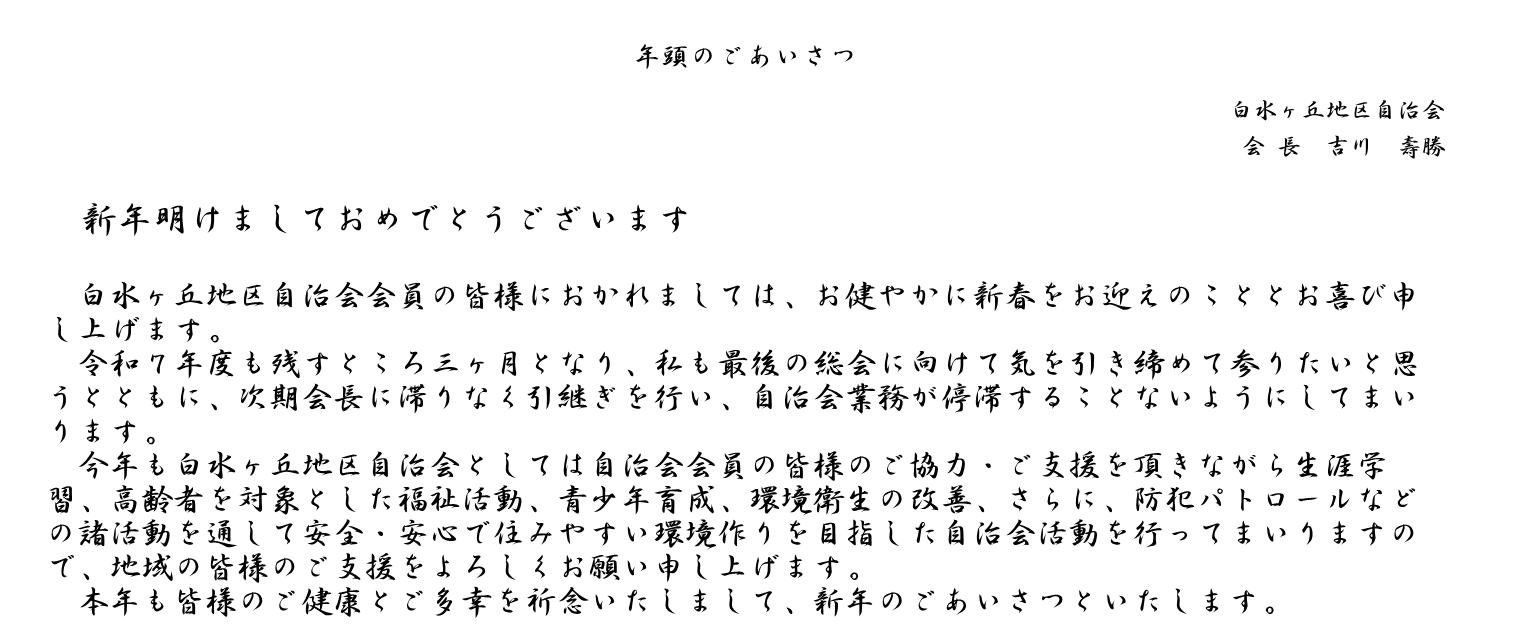 年頭のごあいさつ
白水ヶ丘地区自治会
会 長　吉川　壽勝
新年明けましておめでとうございます
白水ヶ丘地区自治会会員の皆様におかれましては、お健やかに新春をお迎えのこととお喜び申
し上げます。
令和７年度も残すところ三ヶ月となり、私も最後の総会に向けて気を引き締めて参りたいと思
うとともに、次期会長に滞りなく引継ぎを行い、自治会業務が停滞することないようにしてまい
ります。
今年も白水ヶ丘地区自治会としては自治会会員の皆様のご協力・ご支援を頂きながら生涯学
習、高齢者を対象とした福祉活動、青少年育成、環境衛生の改善、さらに、防犯パトロールなど
の諸活動を通して安全・安心で住みやすい環境作りを目指した自治会活動を行ってまいりますの
で、地域の皆様のご支援をよろしくお願い申し上げます。
本年も皆様のご健康とご多幸を祈念いたしまして、新年のごあいさつといたします。